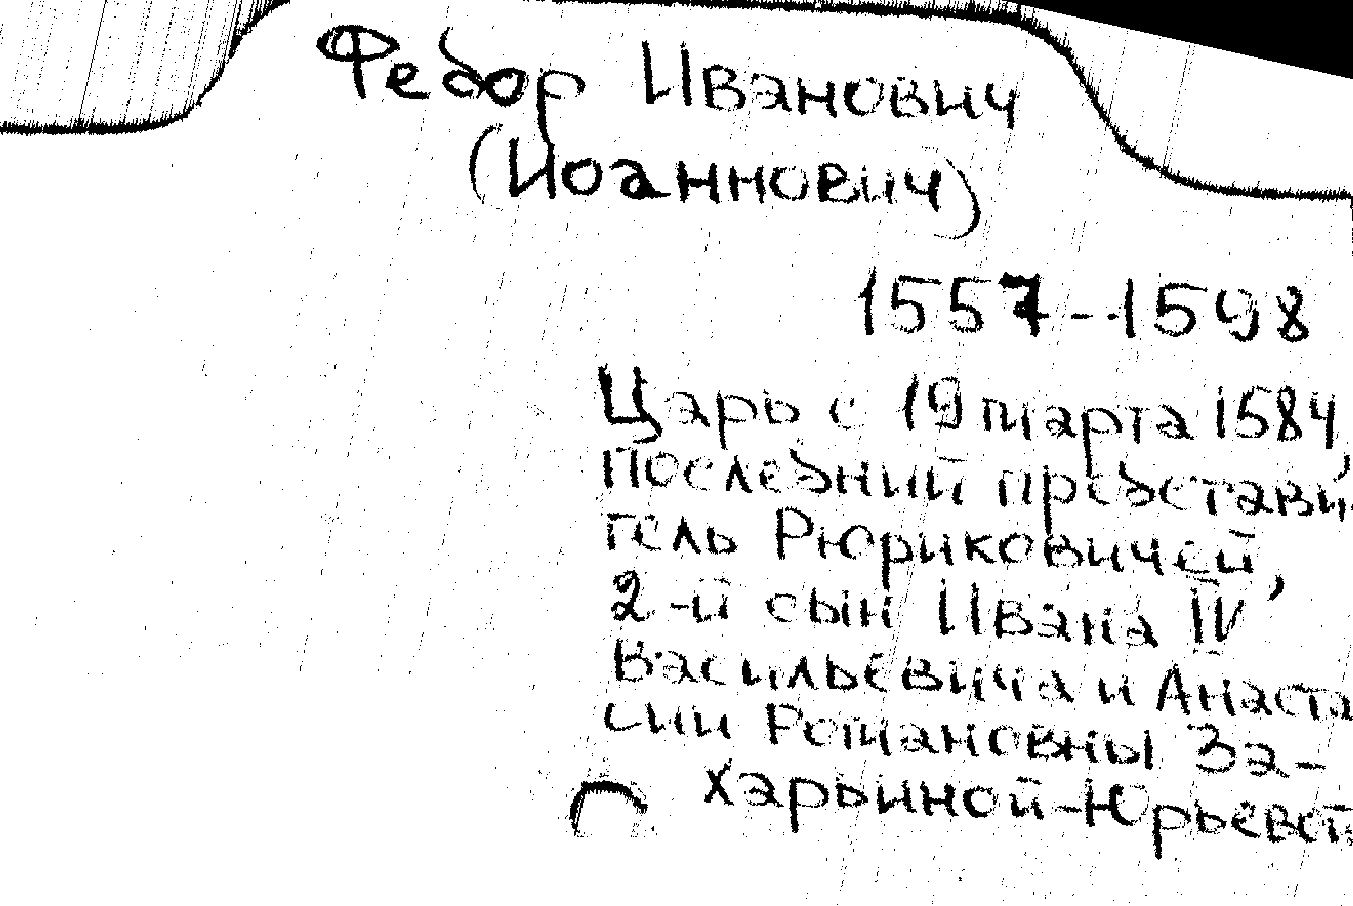 Федор Иванович
(Иоаннович)
1557-1598
Царь с 19 марта 1584,
Последний представи-
тель Рюриковичей,
2-й сын Ивана IV
Васильевича и Анаста
сии Романовны За-
харьиной-Юрьевой